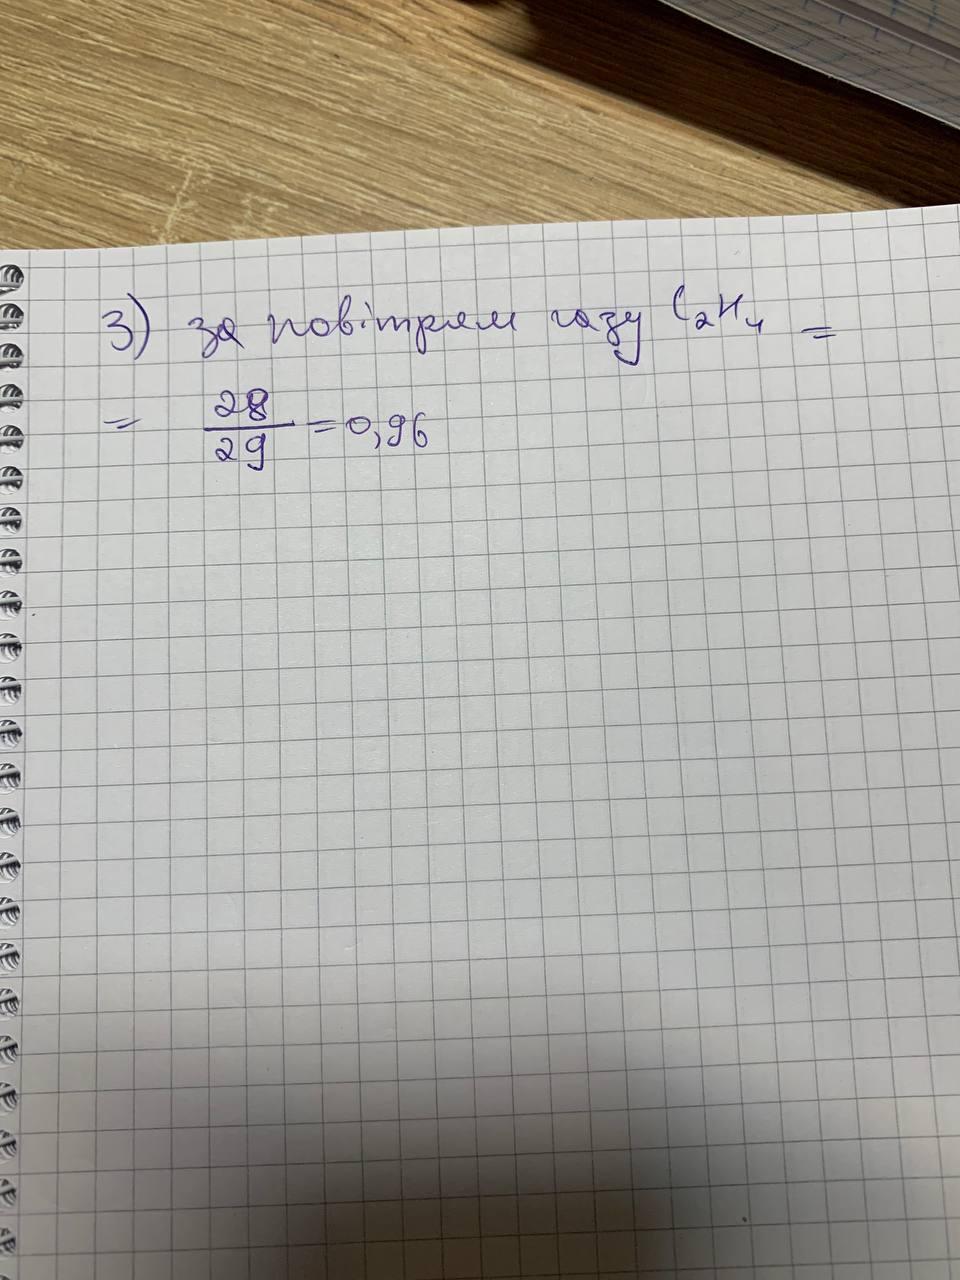 3) за повітрям газу C₂H₄ =
= 28/29 = 0,96